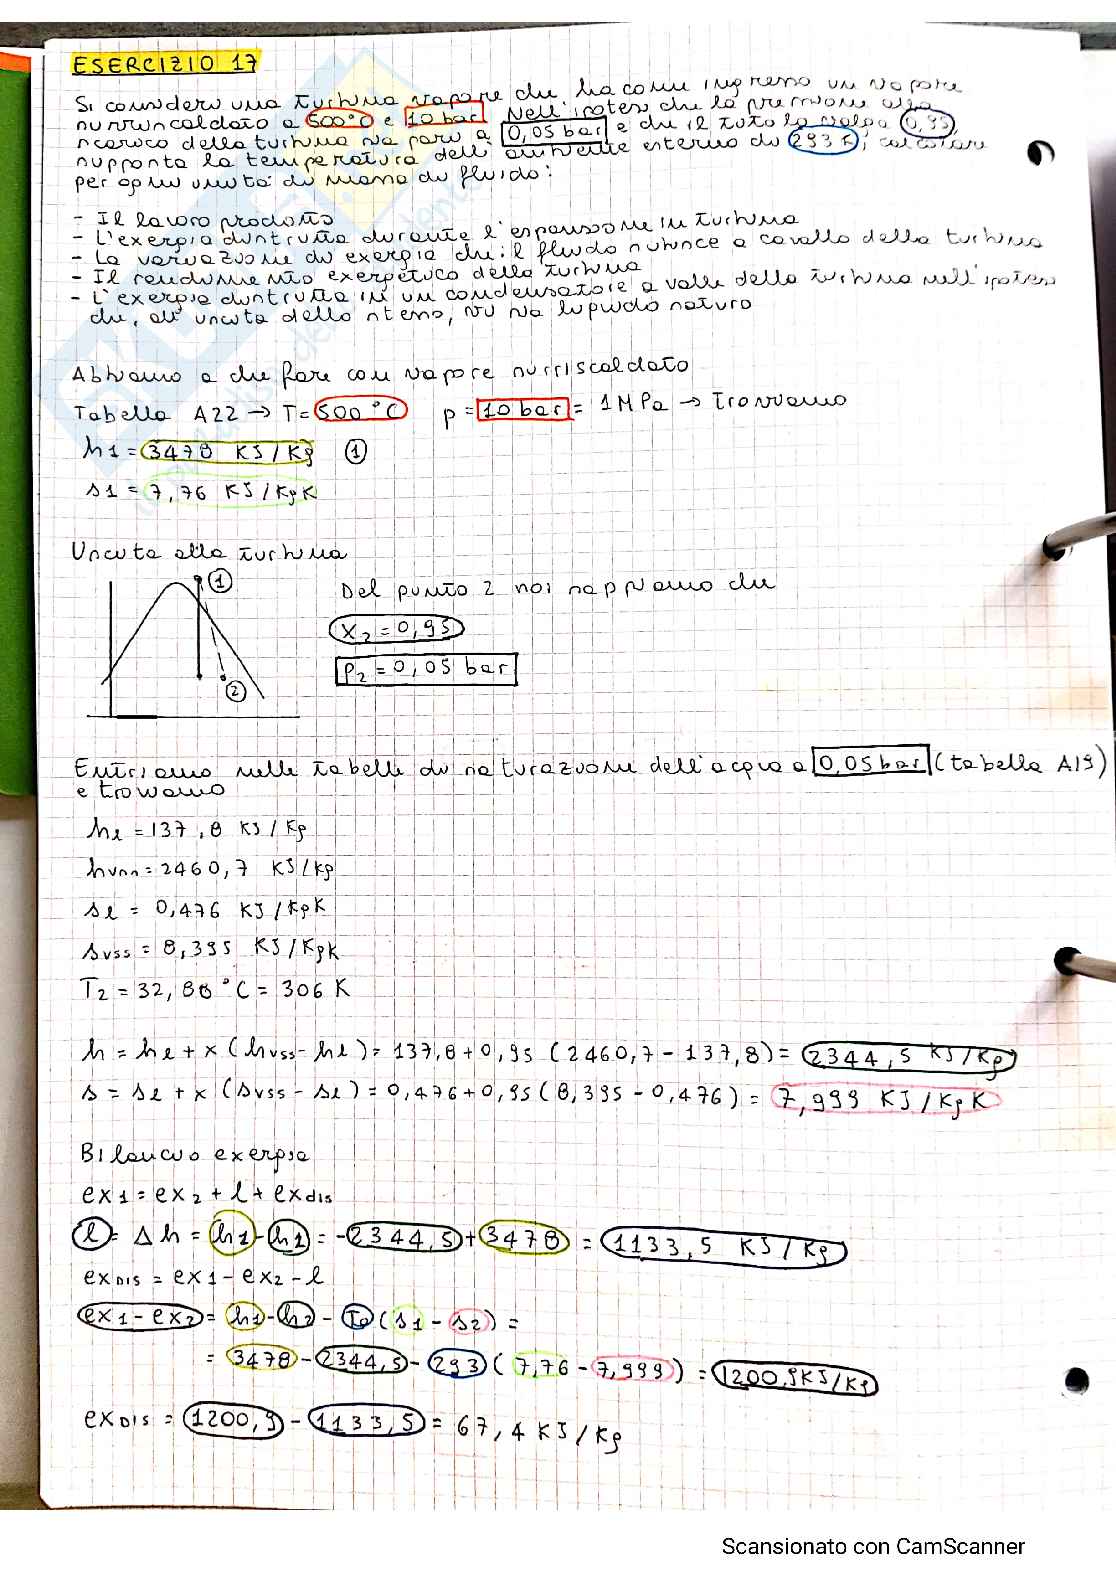 ESERCIZIO 17
Si consideri una turbina vapore che ha come ingresso un vapore
surriscaldato a 500°C e 10 bar. Nell'ipotesi che la pressione allo
scarico della turbina sia pari a 0,05 bar e che il titolo valga 0,95,
supposta la temperatura dell'ambiente esterno di 293 K, calcolare
per ogni unità di massa di fluido:
- Il lavoro prodotto
- L'exergia distrutta durante l'espansione in turbina
- La variazione di exergia che il fluido subisce a cavallo della turbina
- Il rendimento exergetico della turbina
- L'exergia distrutta in un condensatore a valle della turbina nell'ipotesi
che, all'uscita dello stesso, vi sia liquido saturo
Abbiamo a che fare con vapore surriscaldato
Tabella A22 → T = 500°C p = 10 bar = 1 MPa → troviamo
h1 = 3478 KJ/Kg 1
s1 = 7,76 KJ/KgK
Uscita alla turbina
1
2
Del punto 2 noi sappiamo che
x2 = 0,95
P2 = 0,05 bar
Entriamo nelle tabelle di saturazione dell'acqua a 0,05 bar (tabella A19)
e troviamo
hl = 137,8 KJ/Kg
hvss = 2460,7 KJ/Kg
sl = 0,476 KJ/KgK
svss = 8,395 KJ/KgK
T2 = 32,88°C = 306 K
h = hl + x (hvss - hl) = 137,8 + 0,95 (2460,7 - 137,8) = 2344,5 KJ/Kg
s = sl + x (svss - sl) = 0,476 + 0,95 (8,395 - 0,476) = 7,999 KJ/KgK
Bilancio exergia
ex1 = ex2 + l + exdis
l = Δh = h1 - h1 = -2344,5 + 3478 = 1133,5 KJ/Kg
exDIS = ex1 - ex2 - l
ex1 - ex2 = h1 - h2 - T0 (s1 - s2) =
= 3478 - 2344,5 - 293 (7,76 - 7,999) = 1200,9 KJ/Kg
exDIS = 1200,9 - 1133,5 = 67,4 KJ/Kg
Scansionato con CamScanner